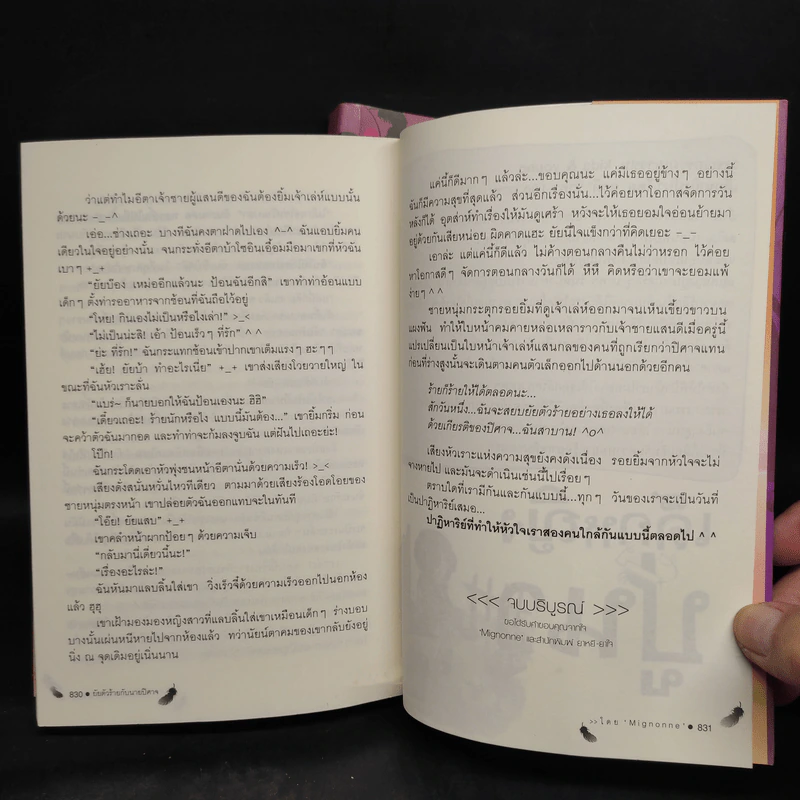 ว่าแต่ทำไมอีตาเจ้าชายผู้แสนดีของฉันต้องยิ้มเจ้าเล่ห์แบบนั้น
ด้วยนะ –_–^
เอ่อ...ช่างเถอะ บางทีฉันคงตาฝาดไปเอง ^–^ ฉันแอบยิ้มคน
เดียวในใจอยู่อย่างนั้น จนกระทั่งอีตาบ้าโซอินเอื้อมมือมาเขกที่หัวฉัน
เบาๆ +_+
“ยัยบ๊อง เหม่ออีกแล้วนะ ป้อนฉันอีกสิ” เขาทำท่าอ้อนแบบ
เด็กๆ ตั้งท่ารออาหารจากช้อนที่ฉันถือไว้อยู่
“โหย! กินเองไม่เป็นหรือไงเล่า!” >_<
“ไม่เป็นน่ะสิ! เอ้า ป้อนเร็วๆ ที่รัก” ^ ^
“ย่ะ ที่รัก!” ฉันกระแทกช้อนเข้าปากเขาเต็มแรงๆ ฮะๆๆ
“เฮ้ย! ยัยบ้า ทำอะไรเนี่ย” +_+ เขาส่งเสียงโวยวายใหญ่ ใน
ขณะที่ฉันหัวเราะลั่น
“แบร่~ ก็นายบอกให้ฉันป้อนเองนะ ฮิฮิ”
“เดี๋ยวเถอะ! ร้ายนักหรือไง แบบนี้มันต้อง...” เขายิ้มกริ่ม ก่อน
จะคว้าตัวฉันมากอด และทำท่าจะก้มลงจูบฉัน แต่ฝันไปเถอะย่ะ!
โป๊ก!
ฉันกระโดดเอาหัวพุ่งชนหน้าอีตานั่นด้วยความเร็ว! >_<
เสียงดังสนั่นหวั่นไหวทีเดียว ตามมาด้วยเสียงร้องโอดโอยของ
ชายหนุ่มตรงหน้า เขาปล่อยตัวฉันออกแทบจะในทันที
“โอ๊ย! ยัยแสบ” +_+
เขาคลำหน้าผากป้อยๆ ด้วยความเจ็บ
“กลับมานี่เดี๋ยวนี้นะ!”
“เรื่องอะไรล่ะ!”
ฉันหันมาแลบลิ้นใส่เขา วิ่งเร็วจี๋ด้วยความเร็วออกไปนอกห้อง
แล้ว ฮุฮุ
เขาเฝ้ามองมองหญิงสาวที่แลบลิ้นใส่เขาเหมือนเด็กๆ ร่างบอบ
บางนั้นเผ่นหนีหายไปจากห้องแล้ว ทว่านัยน์ตาคมของเขากลับยังอยู่
นิ่ง ณ จุดเดิมอยู่เนิ่นนาน
830 ● ยัยตัวร้ายกับนายปีศาจ
แค่นี้ก็ดีมากๆ แล้วล่ะ...ขอบคุณนะ แค่มีเธออยู่ข้างๆ อย่างนี้
ฉันก็มีความสุขที่สุดแล้ว ส่วนอีกเรื่องนั่น...ไว้ค่อยหาโอกาสจัดการวัน
หลังก็ได้ อุตส่าห์ทำเรื่องให้มันดูเศร้า หวังจะให้เธอยอมใจอ่อนย้ายมา
อยู่ด้วยกันเสียหน่อย ผิดคาดแฮะ ยัยนี่ใจแข็งกว่าที่คิดเยอะ –_–
เอาล่ะ แต่แค่นี้ก็ดีแล้ว ไม่ค้างตอนกลางคืนไม่ว่าหรอก ไว้ค่อย
หาโอกาสดีๆ จัดการตอนกลางวันก็ได้ หึหึ คิดหรือว่าเขาจะยอมแพ้
ง่ายๆ ^ ^
ชายหนุ่มกระตุกรอยยิ้มที่ดูเจ้าเล่ห์ออกมาจนเห็นเขี้ยวขาวบน
แผงฟัน ทำให้ใบหน้าคมคายหล่อเหลาราวกับเจ้าชายแสนดีเมื่อครู่นี้
แปรเปลี่ยนเป็นใบหน้าเจ้าเล่ห์แสนกลของคนที่ถูกเรียกว่าปีศาจแทน
ก่อนที่ร่างสูงนั้นจะเดินตามคนตัวเล็กออกไปด้านนอกด้วยอีกคน
ร้ายก็ร้ายให้ได้ตลอดนะ...
สักวันหนึ่ง...ฉันจะสยบยัยตัวร้ายอย่างเธอลงให้ได้
ด้วยเกียรติของปีศาจ...ฉันสาบาน! ^o^
เสียงหัวเราะแห่งความสุขยังคงดังเนื่อง รอยยิ้มจากหัวใจจะไม่
จางหายไป และมันจะดำเนินเช่นนี้ไปเรื่อยๆ
ตราบใดที่เรามีกันและกันแบบนี้...ทุกๆ วันของเราจะเป็นวันที่
เป็นปาฏิหาริย์เสมอ...
ปาฏิหาริย์ที่ทำให้หัวใจเราสองคนใกล้กันแบบนี้ตลอดไป ^ ^
<<< จบบริบูรณ์ >>>
ขอได้รับคำขอบคุณจากใจ
"Mignonne" และสำนักพิมพ์ อาหยี-อาใจ
>> โดย 'Mignonne' ● 831